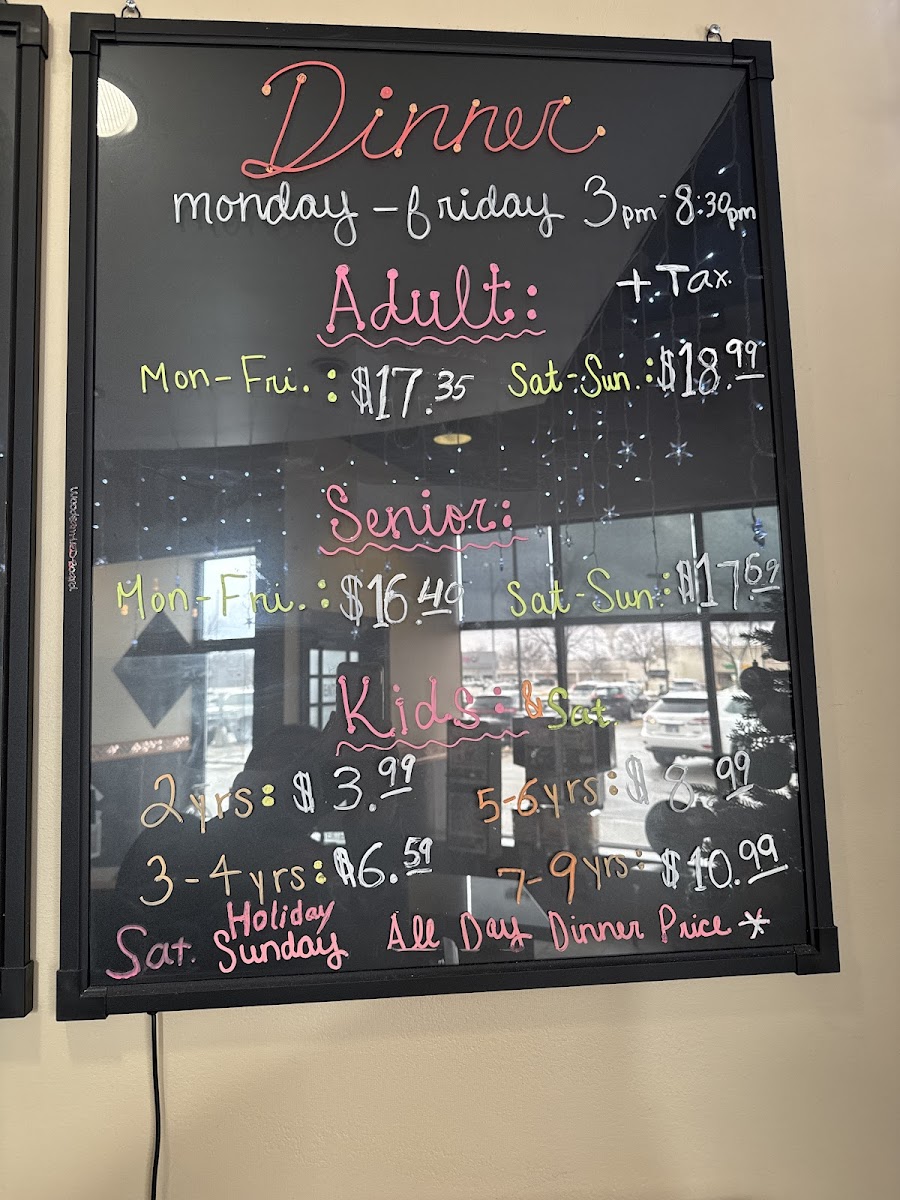 Dinner
monday - friday 3pm-8:30pm
+ Tax
Adult:
Mon-Fri.: $17.35 Sat-Sun.: $18.99
Senior:
Mon-Fri.: $16.40 Sat-Sun: $17.69
Kids: & Sat
2yrs: $3.99 5-6yrs: $8.99
3-4yrs: $6.59 7-9yrs: $10.99
Holiday
Sat. Sunday All Day Dinner Price *